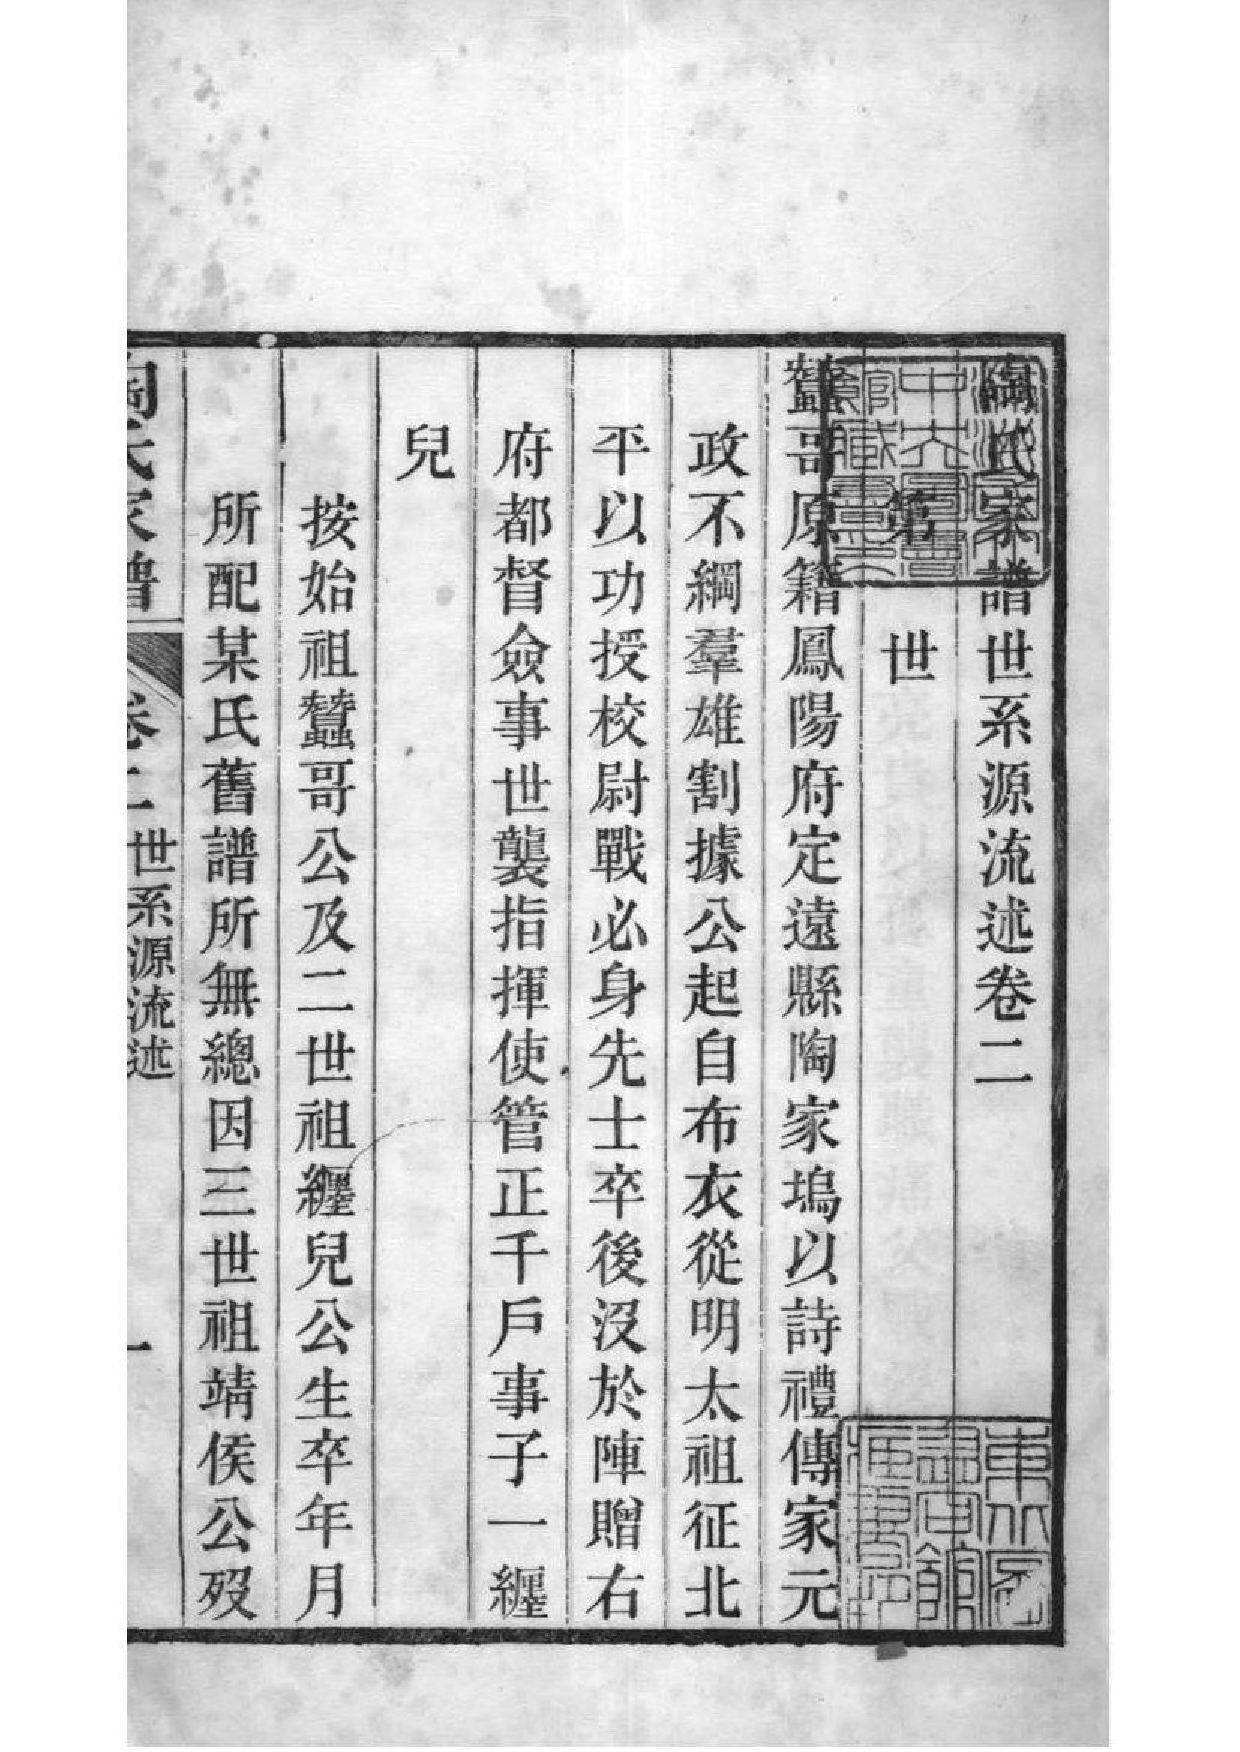 陶氏家譜世系源流述卷二
第一世
蠶哥原籍鳳陽府定遠縣陶家塢以詩禮傳家元
政不綱羣雄割據公起自布衣從明太祖征北
平以功授校尉戰必身先士卒後沒於陣贈右
府都督僉事世襲指揮使管正千戶事子一纏
兒
按始祖蠶哥公及二世祖纏兒公生卒年月
所配某氏舊譜所無總因三世祖靖侯公歿
陶氏家譜 卷二 世系源流述 一